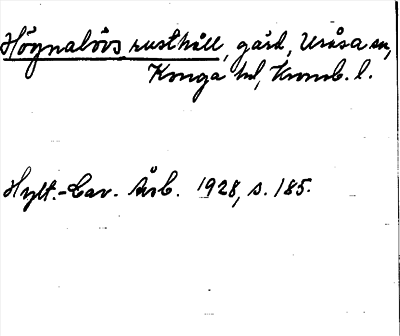 Högnalövs rusthåll, gård, Uråsa sn,
Konga hd, Kronob. l.
Hylt.-Cav. Årb. 1928, s. 185.